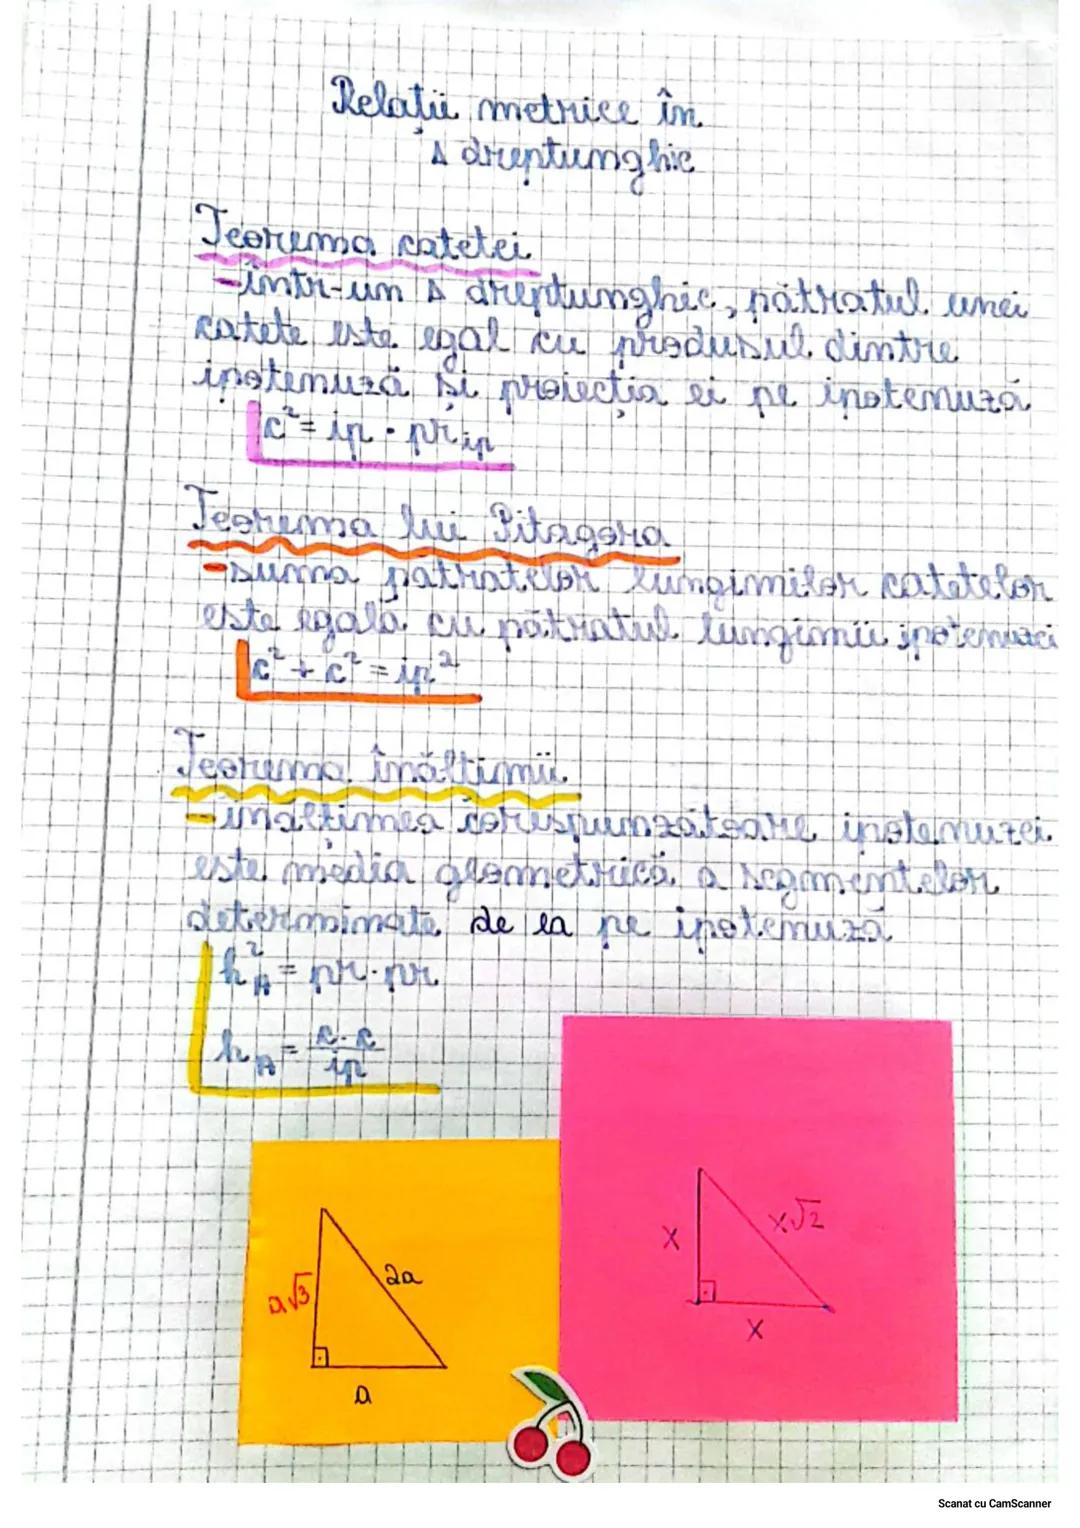 Relații metrice în
Δ dreptunghic
Teorema catetei
-într-un Δ dreptunghic, pătratul unei
catete este egal cu produsul dintre
ipotenuză și proiecția ei pe ipotenuză
c² = ip · pr ip
Teorema lui Pitagora
-suma pătratelor lungimilor catetelor
este egală cu pătratul lungimii ipotenuzei
c² + c² = ip²
Teorema înălțimii
-înălțimea corespunzătoare ipotenuzei
este media geometrică a segmentelor
determinate de ea pe ipotenuză
h²A = pr · pr
hA = c · c / ip
a√3
2a
a
x
x√2
x
Scanat cu CamScanner